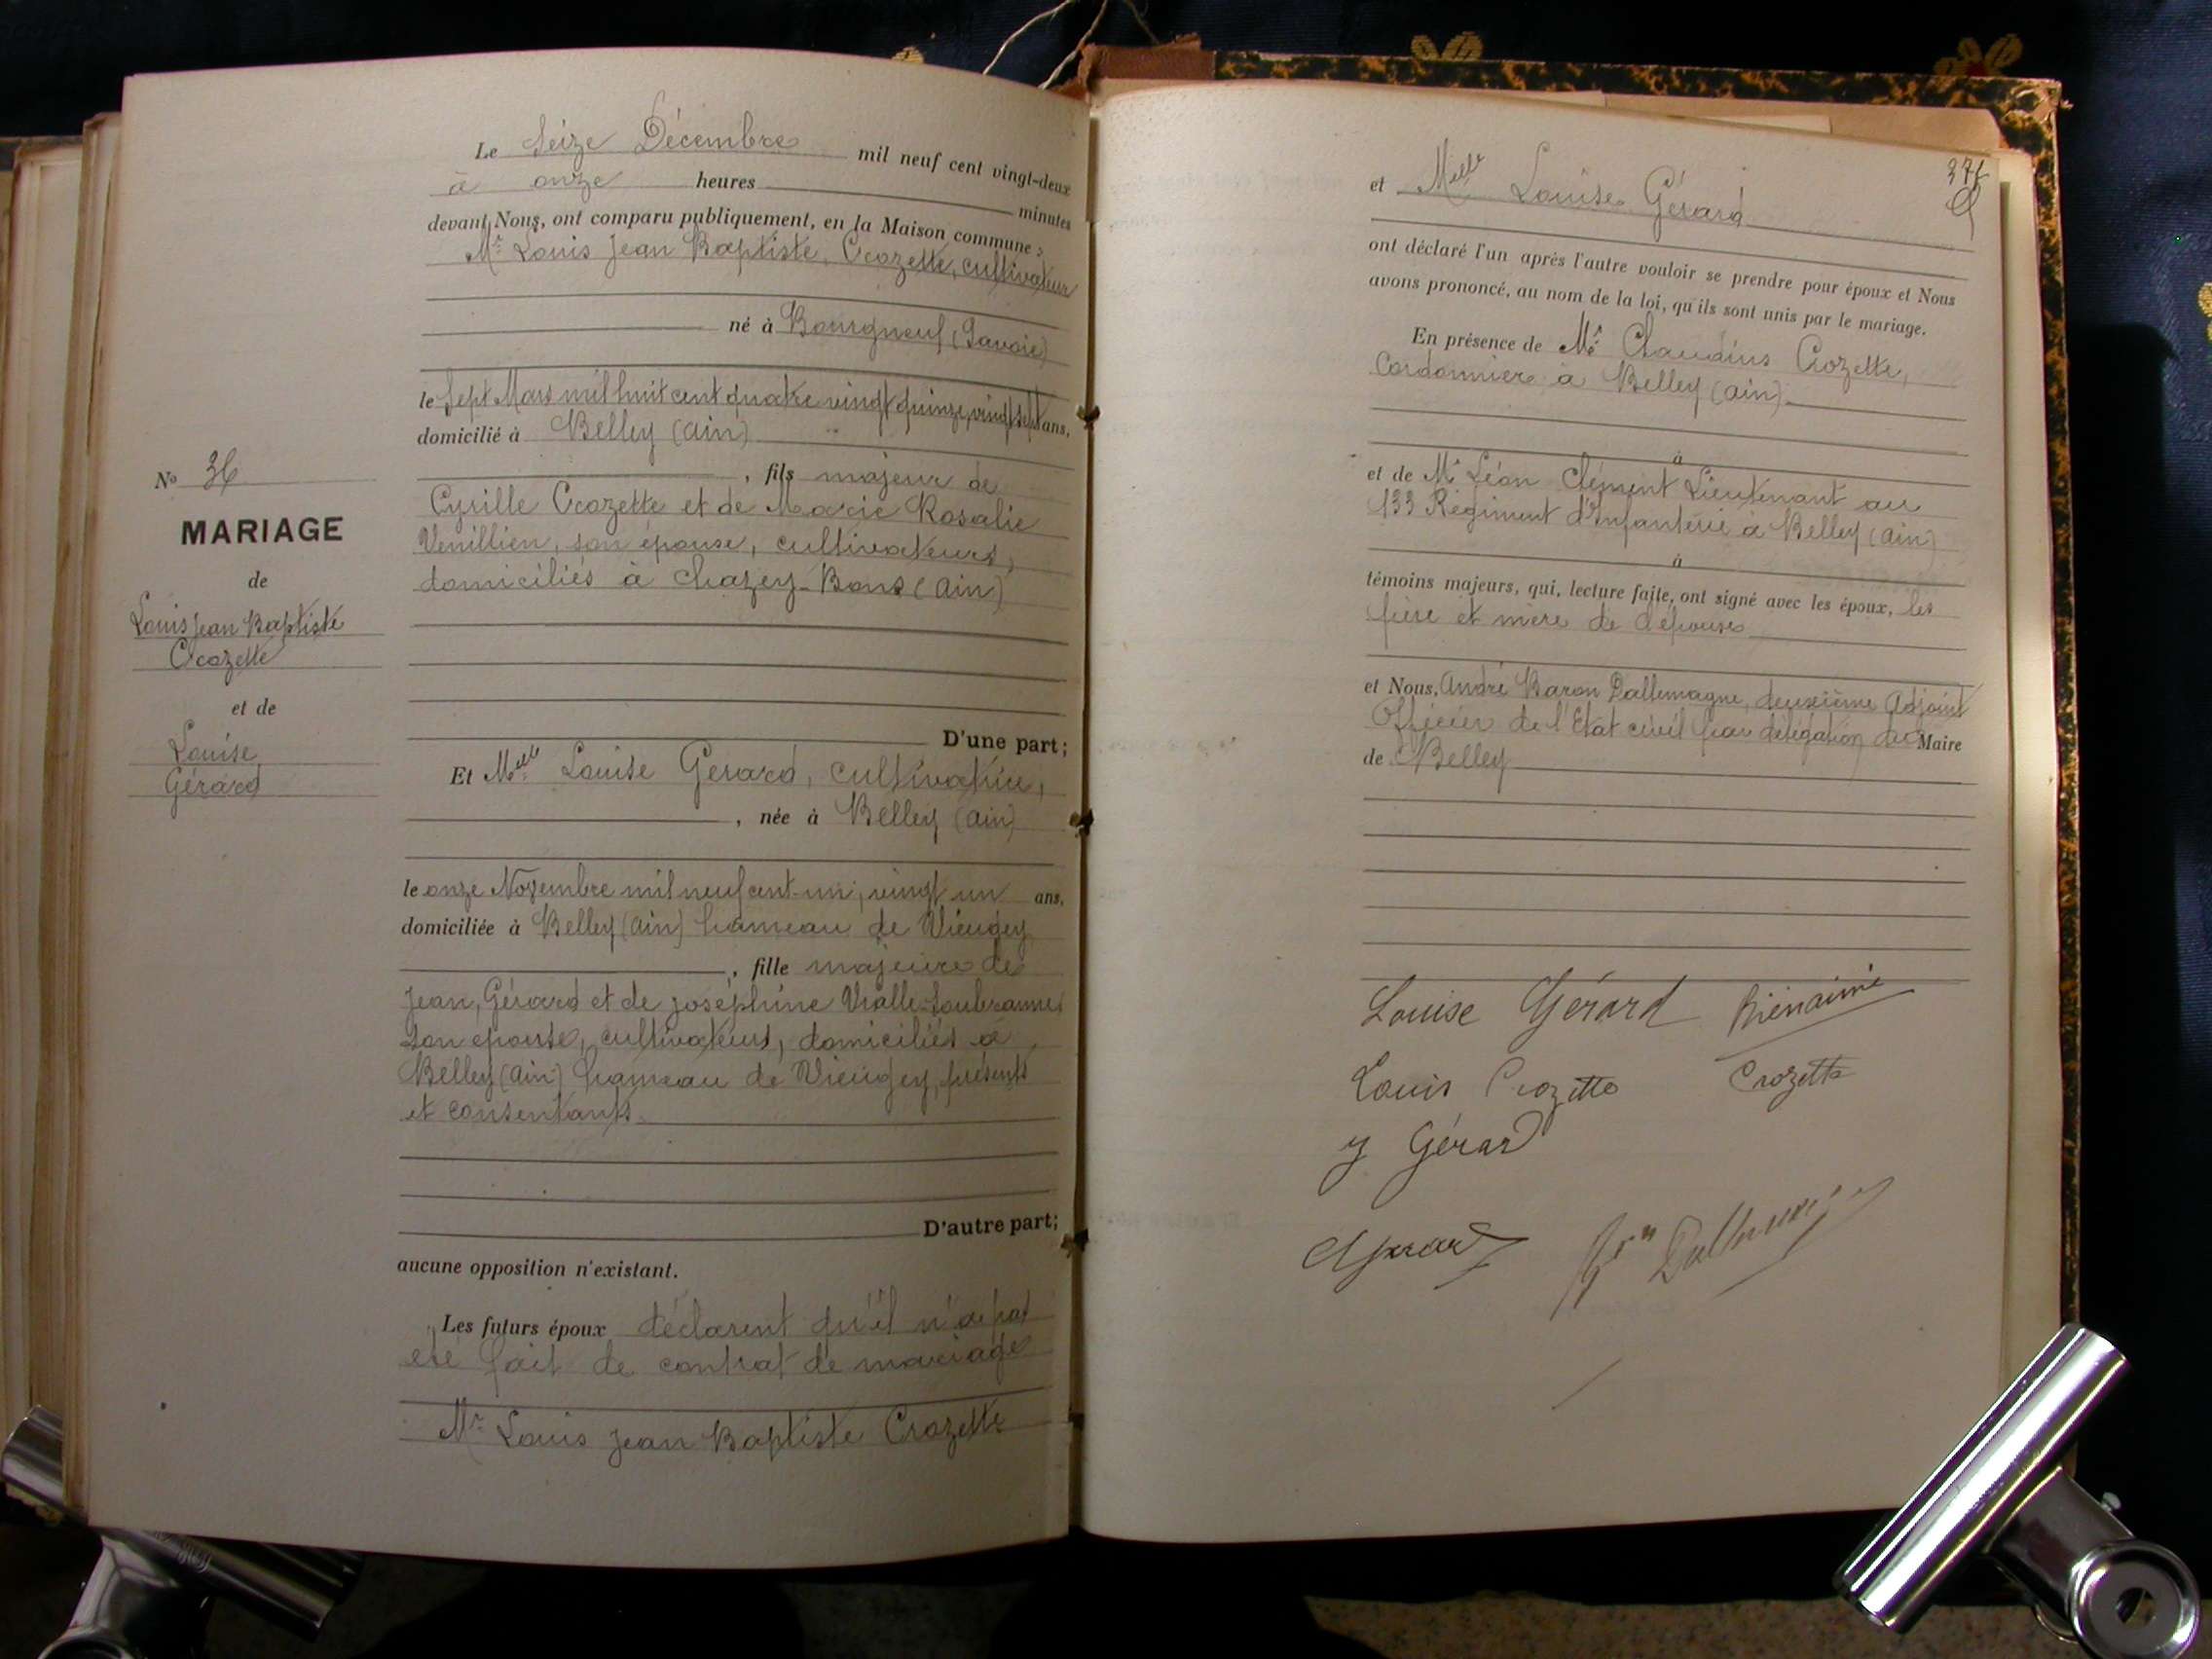 Le Seize Décembre mil neuf cent vingt-deux
à onze heures minutes
devant Nous, ont comparu publiquement, en la Maison commune :
Mr Louis Jean Baptiste, Crozette, cultivateur
né à Bourgneuf (Savoie)
le Sept Mars mil huit cent quatre vingt quinze, vingt sept ans,
domicilié à Belley (Ain)
, fils majeur de
Cyrille Crozette et de Marie Rosalie
Venillien, son épouse, cultivateurs,
domiciliés à Chazey-Bons (Ain)
D'une part;
Et Melle Louise Gérard, cultivatrice,
, née à Belley (Ain)
le onze Novembre mil neuf cent-un, vingt un ans,
domiciliée à Belley (Ain) hameau de Vieugey
, fille majeure de
Jean, Gérard et de joséphine Vialle-Soubranne
son epouse, cultivateurs, domiciliés à
Belley (Ain) hameau de Vieugey, présents
et consentants.
D'autre part;
aucune opposition n'existant.
Les futurs époux déclarent qu'il n'a pas
été fait de contrat de mariage
Mr Louis Jean Baptiste Crozette
No 36
MARIAGE
de
Louis Jean Baptiste
Crozette
et de
Louise
Gérard
et Melle Louise Gérard
ont déclaré l'un après l'autre vouloir se prendre pour époux et Nous
avons prononcé, au nom de la loi, qu'ils sont unis par le mariage.
En présence de Mr Claudius Crozette,
Cordonnier à Belley (Ain)
à
et de Mr Léon Clément Lieutenant au
133 Régiment d'Infanterie à Belley (Ain)
à
témoins majeurs, qui, lecture faite, ont signé avec les époux, les
père et mère de l'épouse
et Nous, André Baron Dallemagne, deuxième Adjoint
Officier de l'Etat civil par délégation du Maire
de Belley
Louise Gérard
Bienaimé
Louis Crozette
Crozette
J Gérard
Gérard
Bon Dallemagne